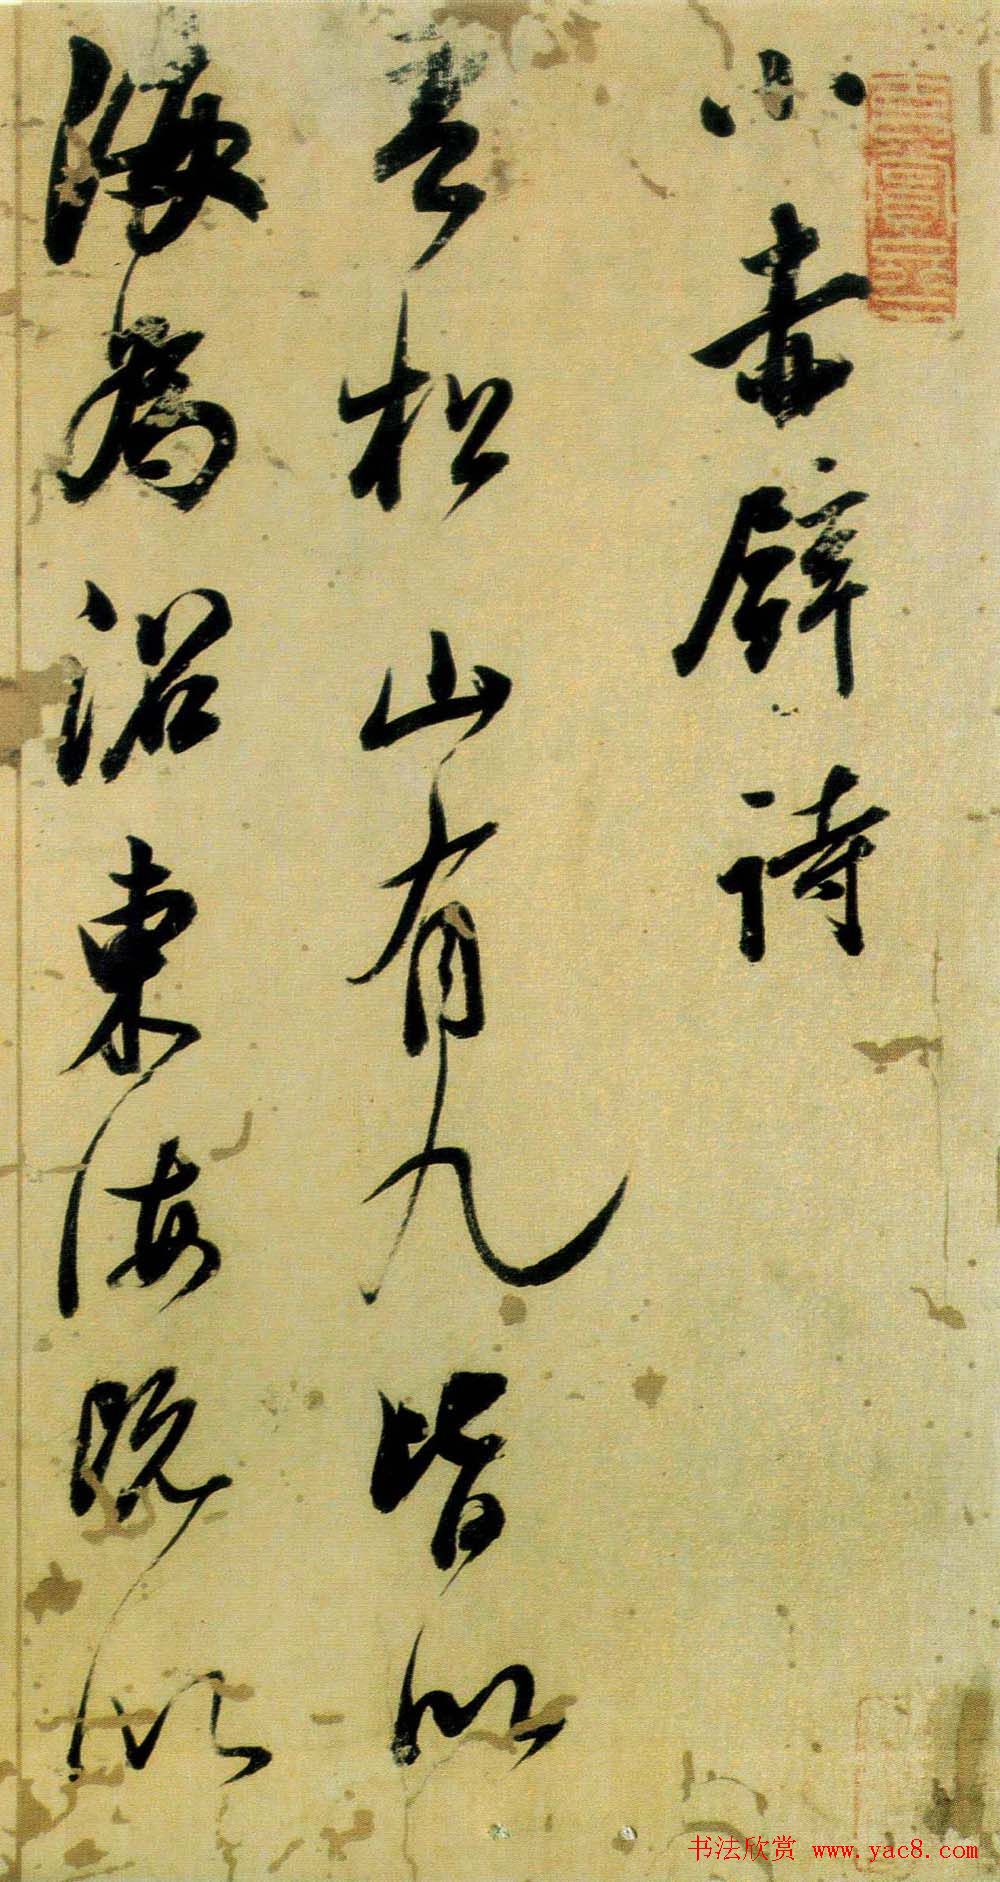 小赤壁詩
吾松山有九皆以
海為沼東海既以
玄賞齋
书法欣赏 www.yac8.com